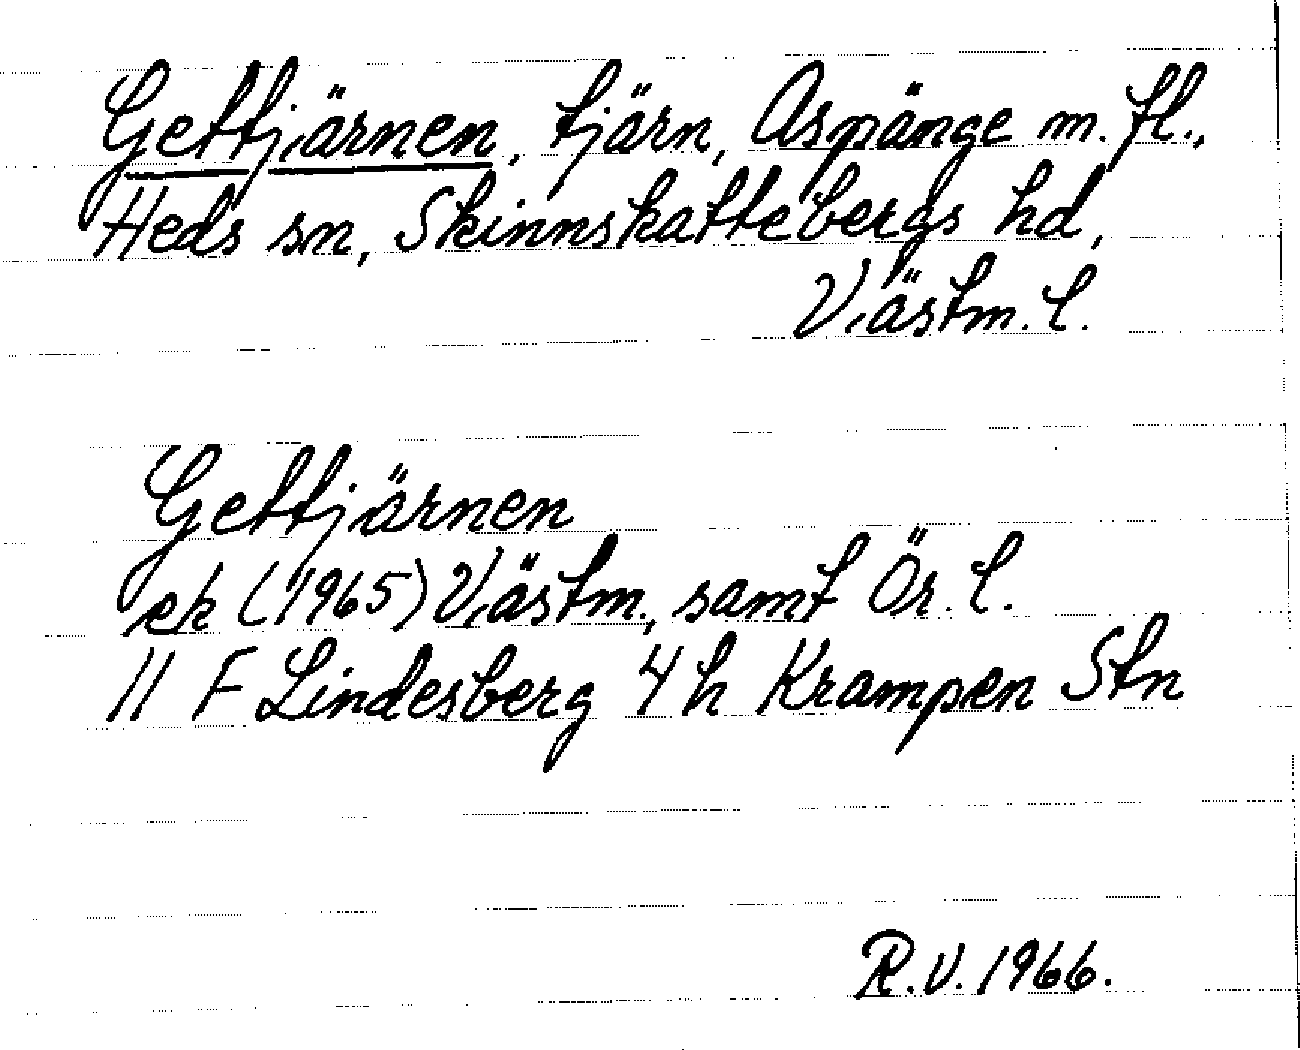 Gettjärnen, tjärn, Aspänge m. fl.,
Heds sn, Skinnskattebergs hd,
Västm. l.
Gettjärnen
ek (1965) Västm., samt Ör. l.
11 F Lindesberg 4 h Krampen Stn
R.V. 1966.